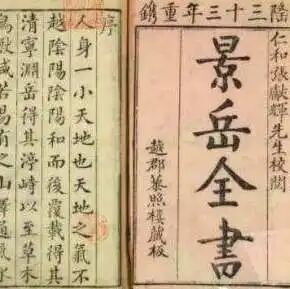 隆三十三年重鐫
仁和張獻輝先生校閱
景岳全書
越郡藜照樓藏板
序
人身一小天地也天地之氣不
越陰陽陰陽和而後覆載得其
清寧淵岳得其渟峙以至草木
鳥獸咸若
之山澤通氣